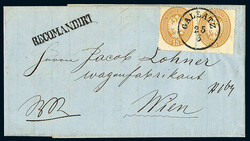 RECOMANDIRT
GALLATZ
25
Herrn Jacob Lohner
Wagenfabrikant
Wien